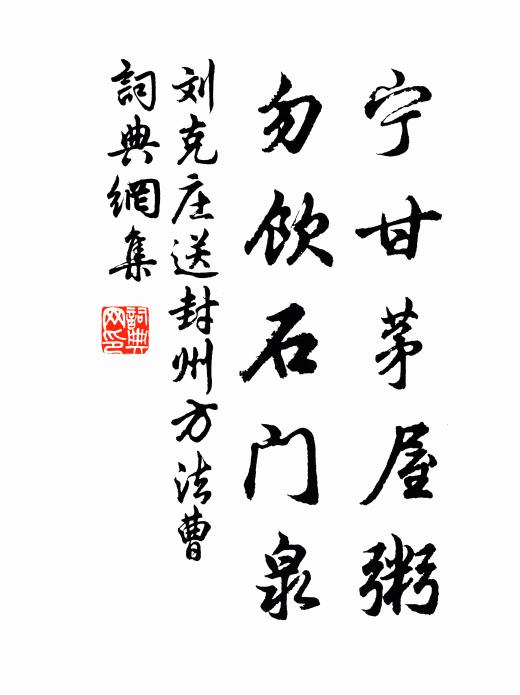 宁甘茅屋粥
勿饮石门泉
刘克庄送封州方法曹
词典網集
詞典
网印